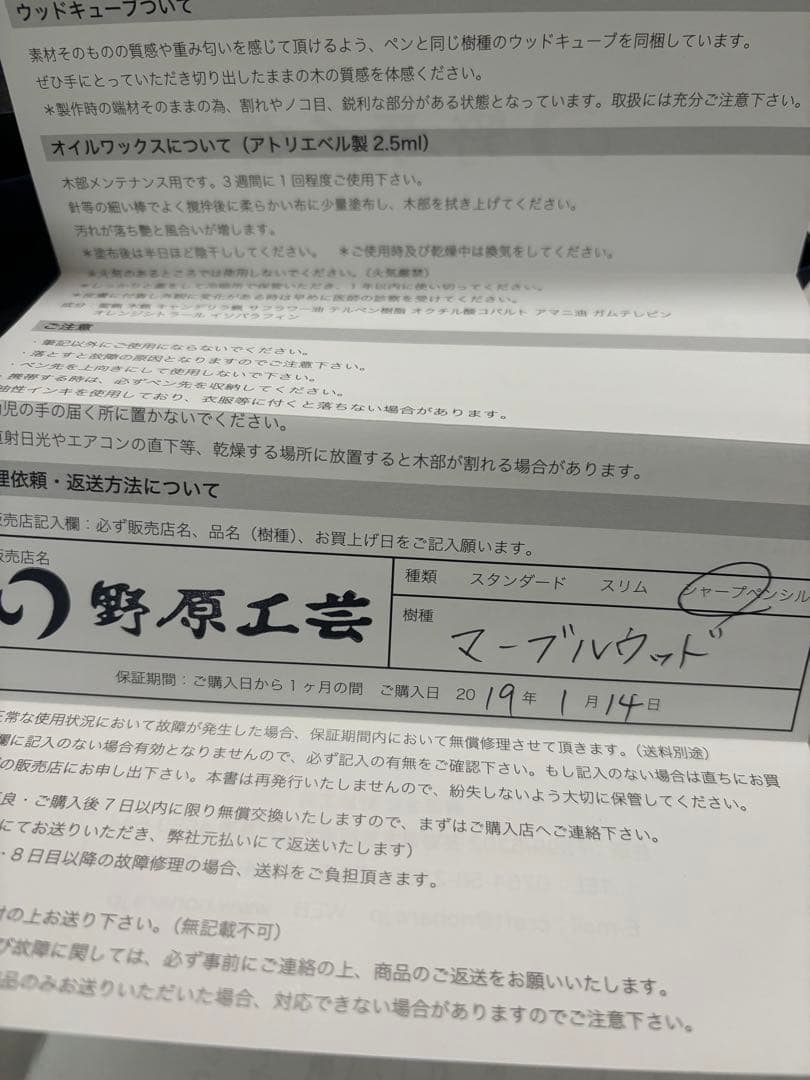 ウッドキューブついて
素材そのものの質感や重み匂いを感じて頂けるよう、ペンと同じ樹種のウッドキューブを同梱しています。
ぜひ手にとっていただき切り出したままの木の質感を体感ください。
＊製作時の端材そのままの為、割れやノコ目、鋭利な部分がある状態となっています。取扱には充分ご注意下さい。
オイルワックスについて（アトリエベル製 2.5ml）
木部メンテナンス用です。3週間に1回程度ご使用下さい。
針等の細い棒でよく攪拌後に柔らかい布に少量塗布し、木部を拭き上げてください。
汚れが落ち艶と風合いが増します。
＊塗布後は半日ほど陰干ししてください。 ＊ご使用時及び乾燥中は換気をしてください。
＊火気のあるところでは使用しないでください。（火気厳禁）
＊しっかりと蓋をして冷暗所で保管いただき、1年以内に使い切ってください。
＊皮膚に付着し外観に変化がある時は早めに医師の診察を受けてください。
成分 蜜蝋 木蝋 キャンデリラ蝋 サフラワー油 テルペン樹脂 オクチル酸コバルト アマニ油 ガムテレピン
オレンジントラール イソパラフィン
ご注意
・筆記以外にご使用にならないでください。
・落とすと故障の原因となりますのでご注意下さい。
・ペン先を上向きにして使用しないで下さい。
・携帯する時は、必ずペン先を収納してください。
油性インキを使用しており、衣服等に付くと落ちない場合があります。
児の手の届く所に置かないでください。
射日光やエアコンの直下等、乾燥する場所に放置すると木部が割れる場合があります。
理依頼・返送方法について
売店記入欄：必ず販売店名、品名（樹種）、お買上げ日をご記入願います。
販売店名
野原工芸
種類 スタンダード スリム シャープペンシル
樹種 マーブルウッド
保証期間：ご購入日から1ヶ月の間 ご購入日 2019年 1月14日
正常な使用状況において故障が発生した場合、保証期間内において無償修理させて頂きます。（送料別途）
欄に記入のない場合有効となりませんので、必ず記入の有無をご確認下さい。もし記入のない場合は直ちにお買
の販売店にお申し出下さい。本書は再発行いたしませんので、紛失しないよう大切に保管してください。
良・ご購入後7日以内に限り無償交換いたしますので、まずはご購入店へご連絡下さい。
にてお送りいただき、弊社元払いにて返送いたします）
・8日目以降の故障修理の場合、送料をご負担頂きます。
付の上お送り下さい。（無記載不可）
び故障に関しては、必ず事前にご連絡の上、商品のご返送をお願いいたします。
品のみお送りいただいた場合、対応できない場合がありますのでご注意下さい。